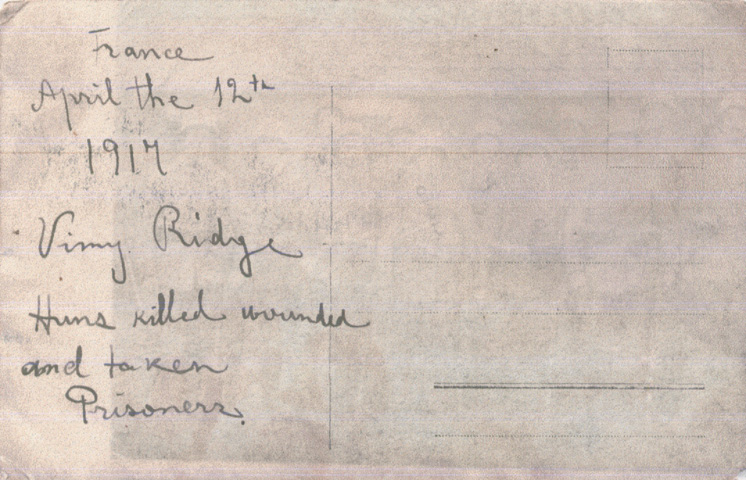 France
April the 12th
1917
Vimy Ridge
Huns killed wounded
and taken
Prisoners.